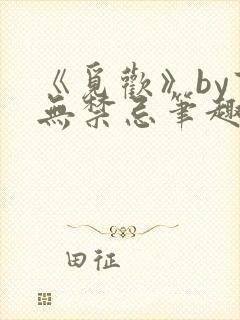 《覓歡》by
無禁忌筆趣
田征